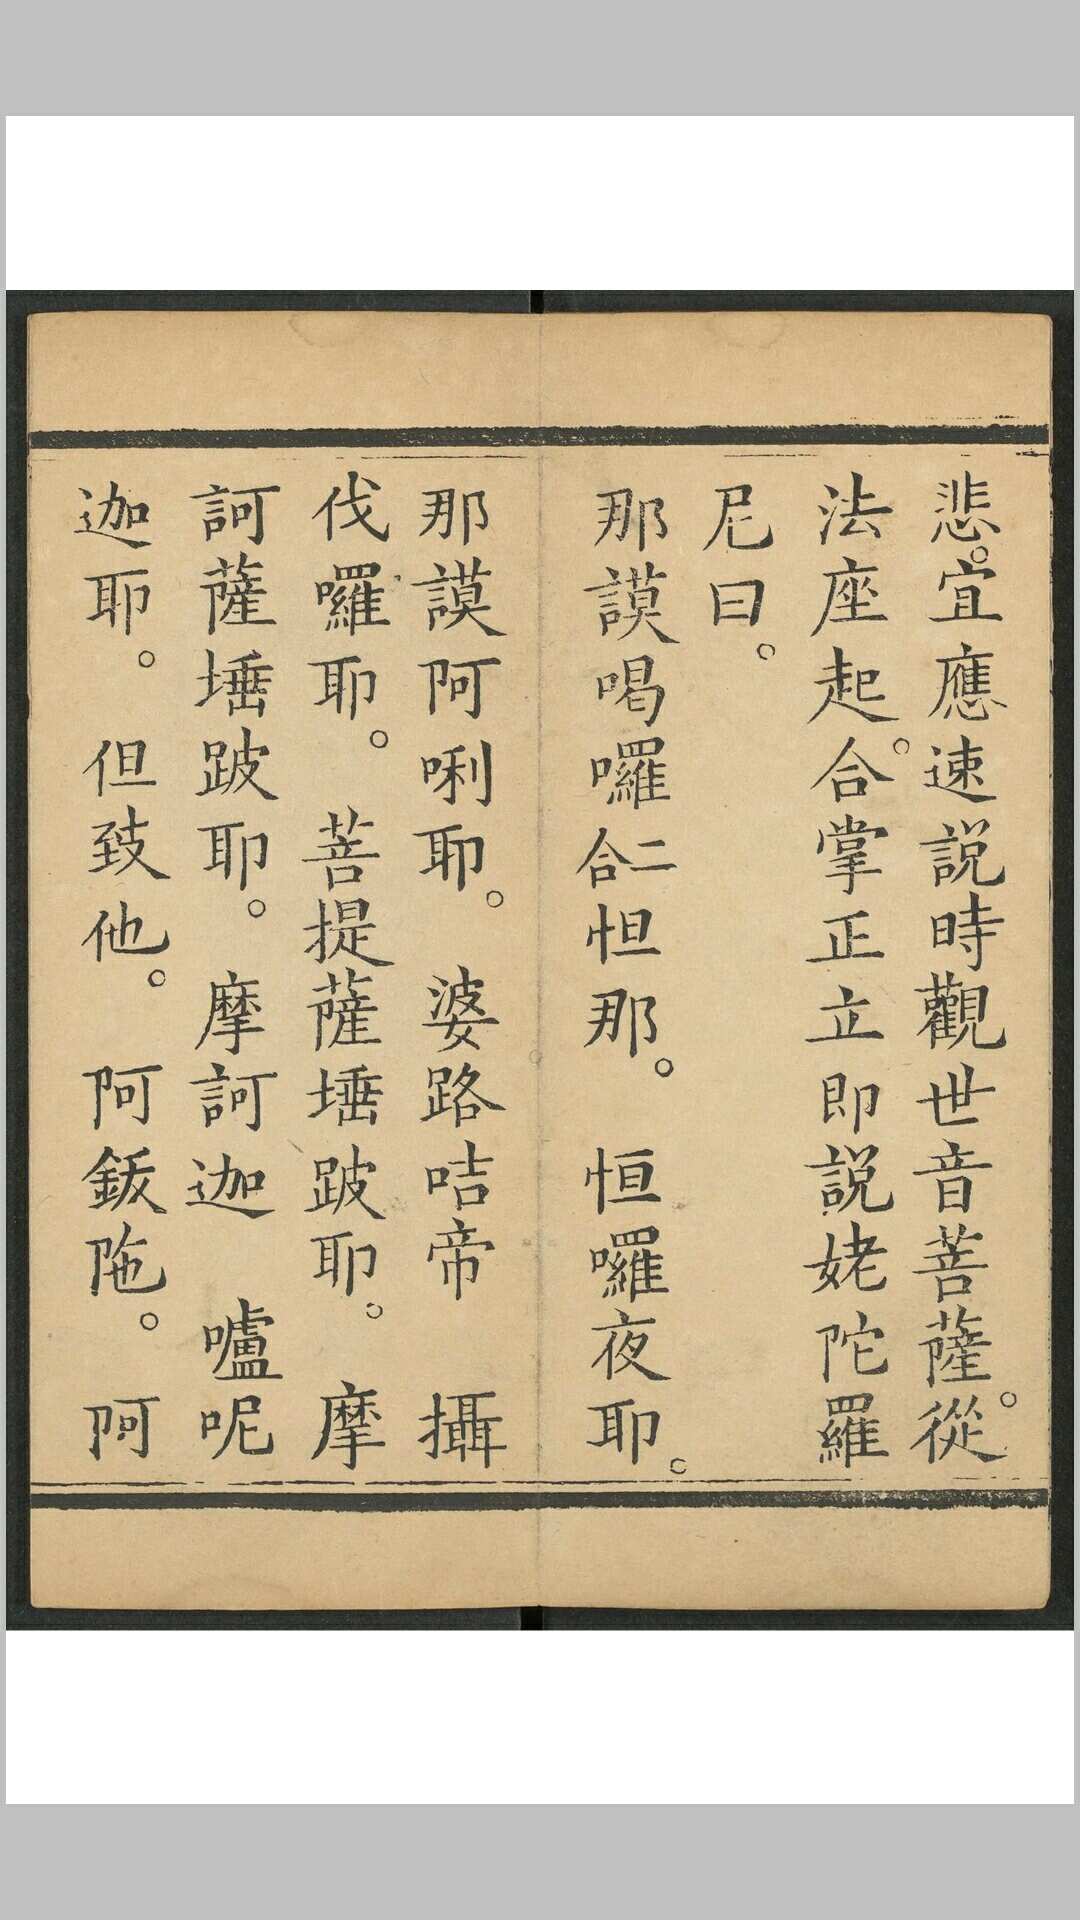 悲。宜應速說時觀世音菩薩。從
法座起。合掌正立即說姥陀羅
尼曰。
那謨喝囉二合怛那。 恒囉夜耶。
那謨阿唎耶。 婆路咭帝 攝
伐囉耶。 菩提薩埵跛耶。 摩
訶薩埵跛耶。 摩訶迦 嚧呢
迦耶。 但致他。 阿鈸陁。 阿